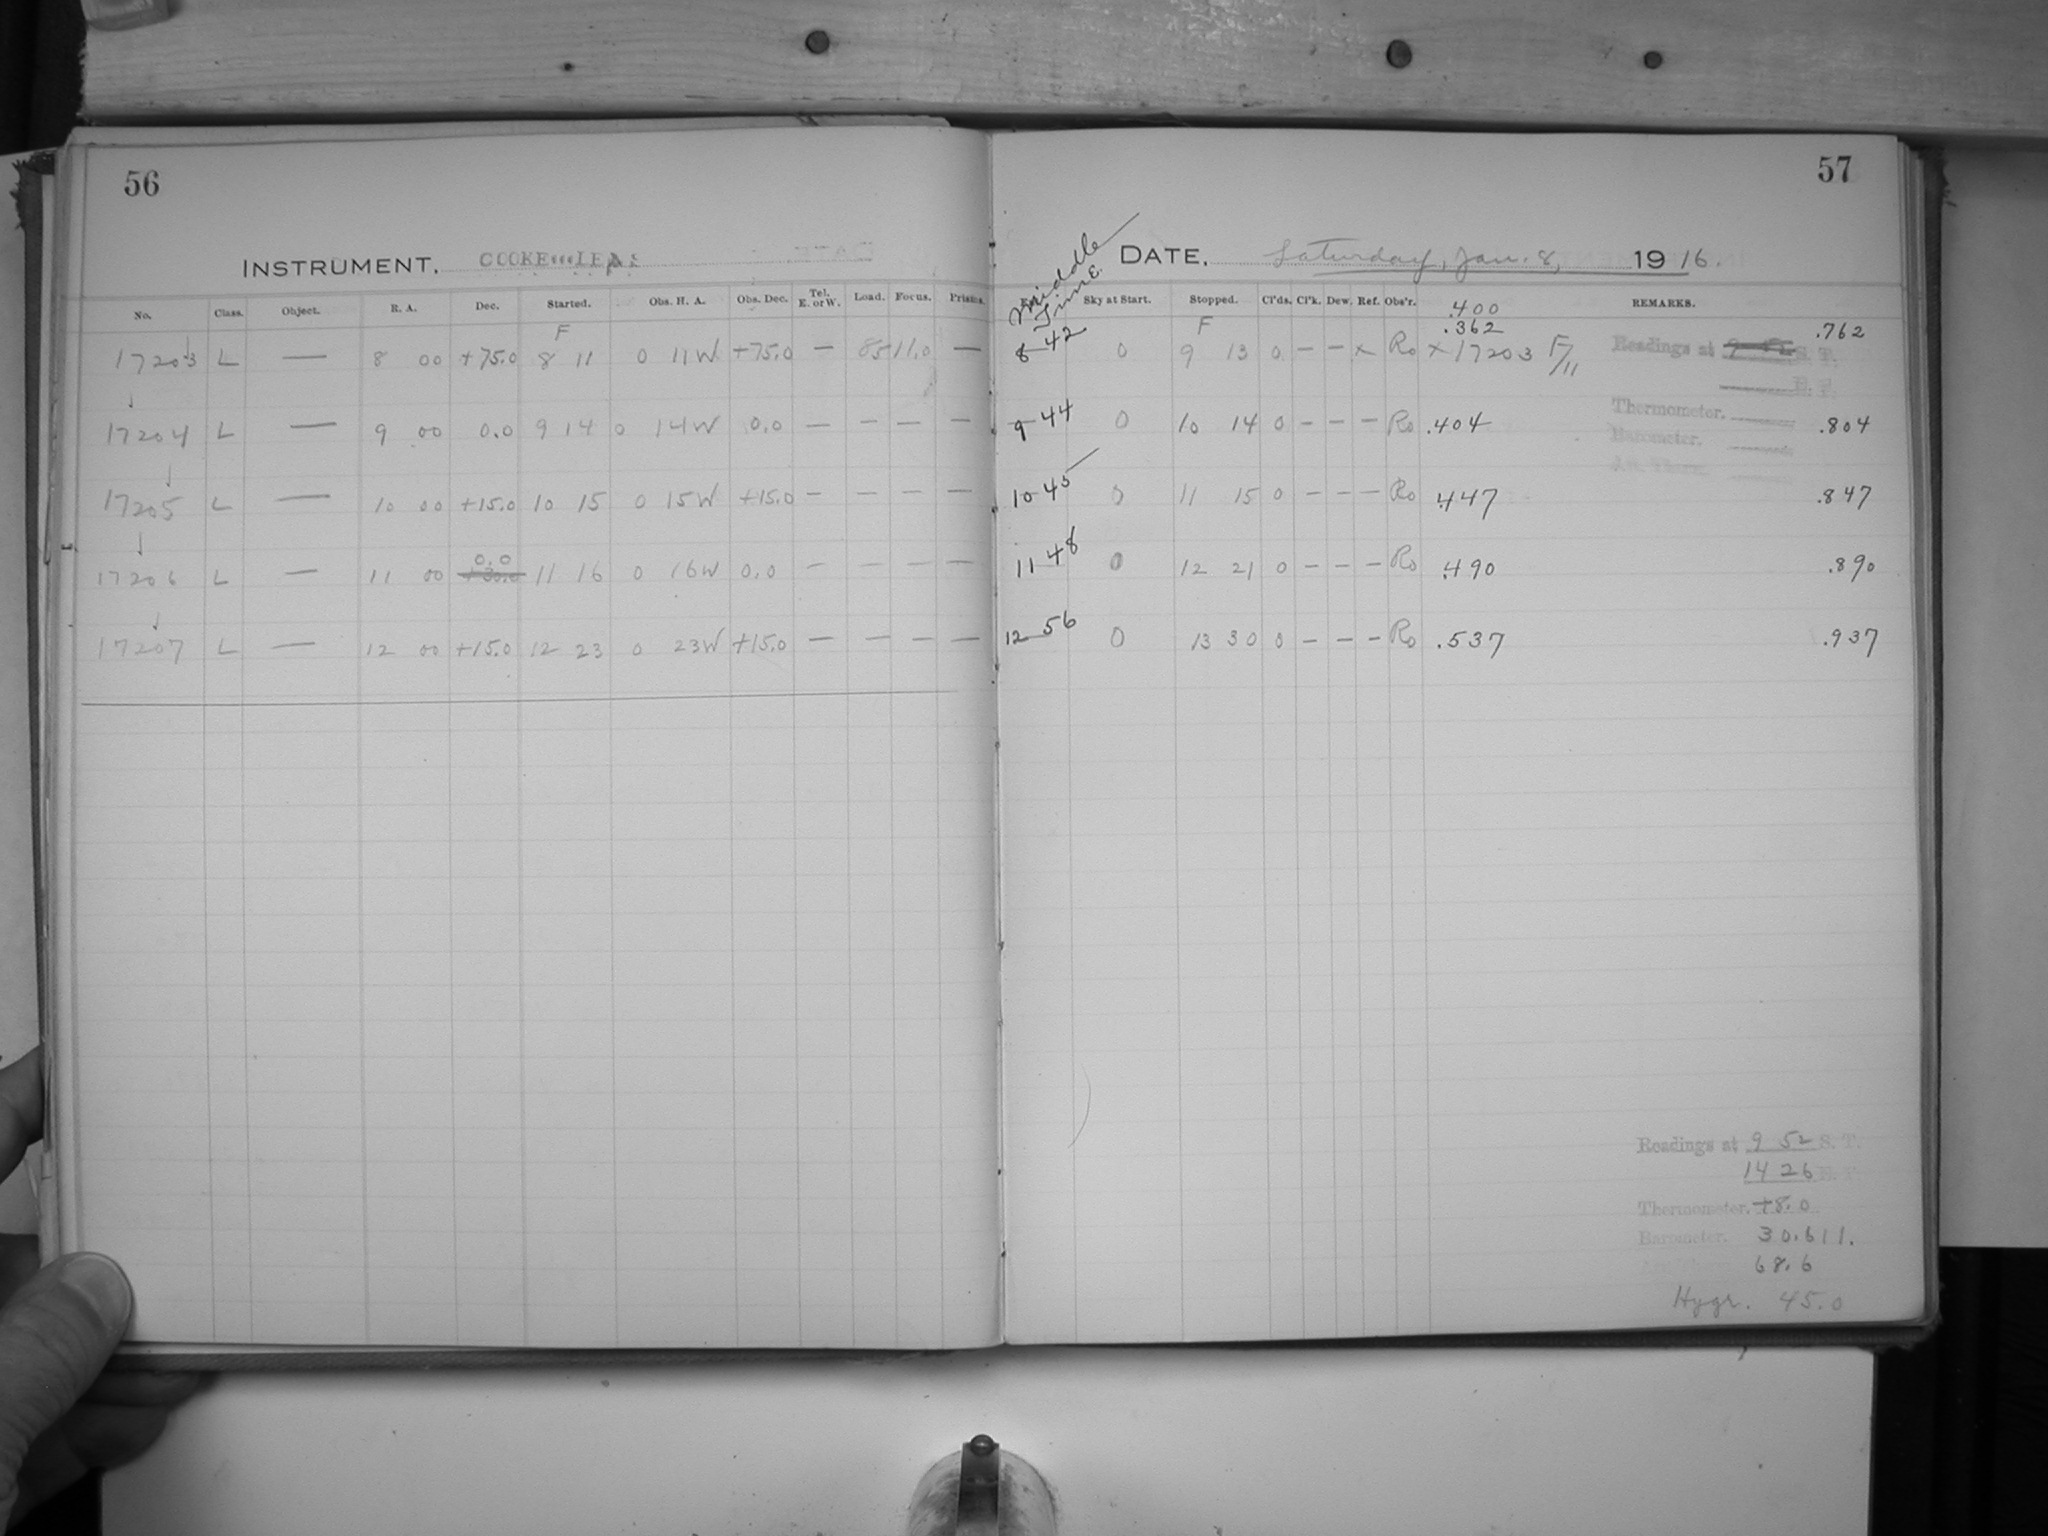 56
INSTRUMENT. COOKE LENS
No. Class. Object. R. A. Dec. Started. Obs. H. A. Obs. Dec. Tel. E. or W. Load. Focus. Prisms.
F
17203 L — 8 00 +75.0 8 11 0 11W +75.0 — 85 11.0 —
17204 L — 9 00 0.0 9 14 0 14W 0.0 — — — —
17205 L — 10 00 +15.0 10 15 0 15W +15.0 — — — —
0.0
17206 L — 11 00 +30.0 11 16 0 16W 0.0 — — — —
17207 L — 12 00 +15.0 12 23 0 23W +15.0 — — — —
57
DATE. Saturday, Jan. 8, 1916.
Middle Time Sky at Start. Stopped. Cl'ds. Cl'k. Dew. Ref. Obs'r. REMARKS.
.400
F .362 .762
8 42 0 9 13 0 — — x Ro x 17203 F/11 Readings at S. T.
E. T.
Thermometer.
9 44 0 10 14 0 — — — Ro .404 .804
Barometer.
Att. Therm.
10 45 0 11 15 0 — — — Ro .447 .847
11 48 0 12 21 0 — — — Ro .490 .890
12 56 0 13 30 0 — — — Ro .537 .937
Readings at 9 52 S. T.
14 26 E. T.
Thermometer. +8.0
Barometer. 30.611.
68.6
Hygr. 45.0